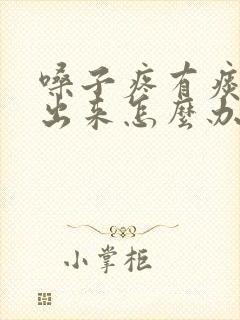 嗓子疼有痰
出来怎麽办
小掌柜